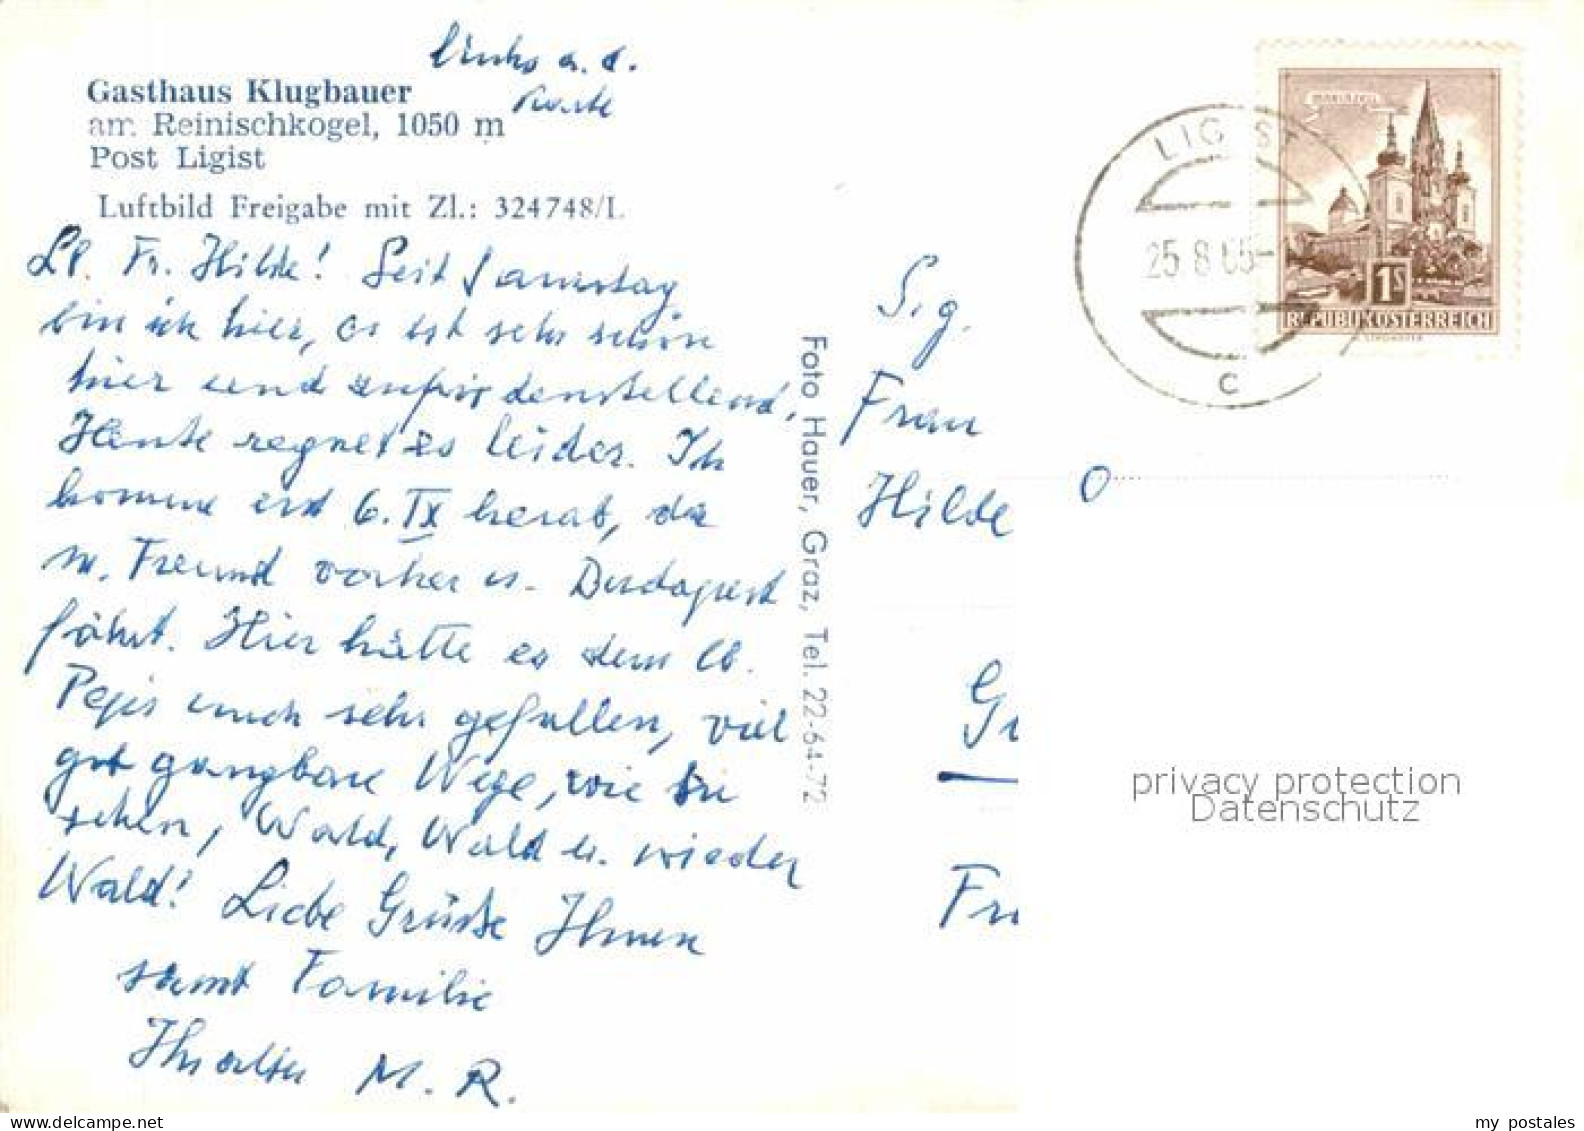 links a. d.
Karte
Gasthaus Klugbauer
am Reinischkogel, 1050 m
Post Ligist
Luftbild Freigabe mit Zl.: 324748/L
Lb. Fr. Hilde! Seit Samstag
bin ich hier, es ist sehr schön
hier und zufriedenstellend,
Heute regnet es leider. Ich
komme erst 6. IX herab, da
m. Freund vorher n. Budapest
fährt. Hier hätte es dem lb.
Pepis auch sehr gefallen, viel
gut gangbare Wege, wie Sie
sehen, Wald, Wald u. wieder
Wald! Liebe Grüße Ihnen
samt Familie
Ihr alter M. R.
Foto Hauer, Graz, Tel. 22-64-72
LIGIST
25 8 65-
C
MARIAZELL
1S
REPUBLIK ÖSTERREICH
Sig.
Frau
Hilde O
G
Fr
privacy protection
Datenschutz
my postales